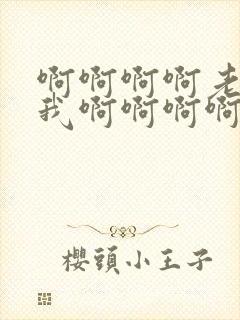 啊啊啊啊老
我啊啊啊啊
櫻頭小王子